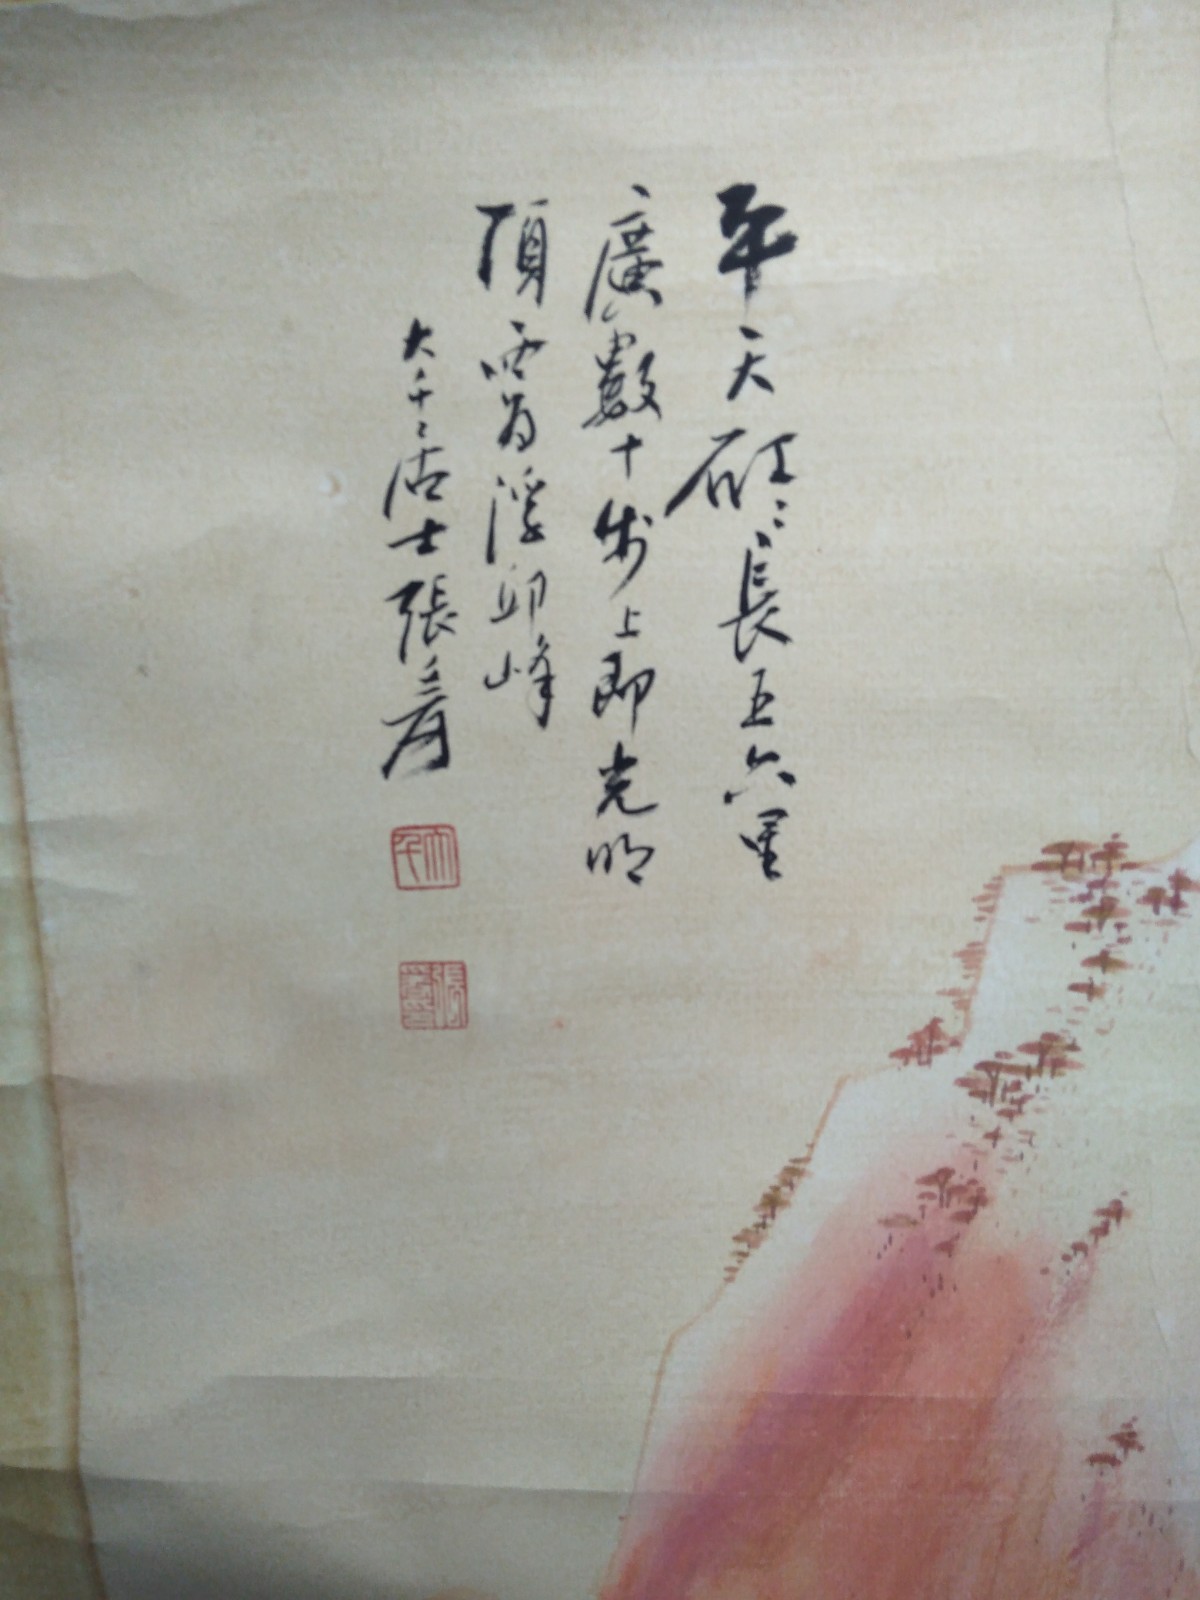 平天矼々長五六里
廣數十步上即光明
頂西為浮邱峰
大千居士張爰
大千
張爰